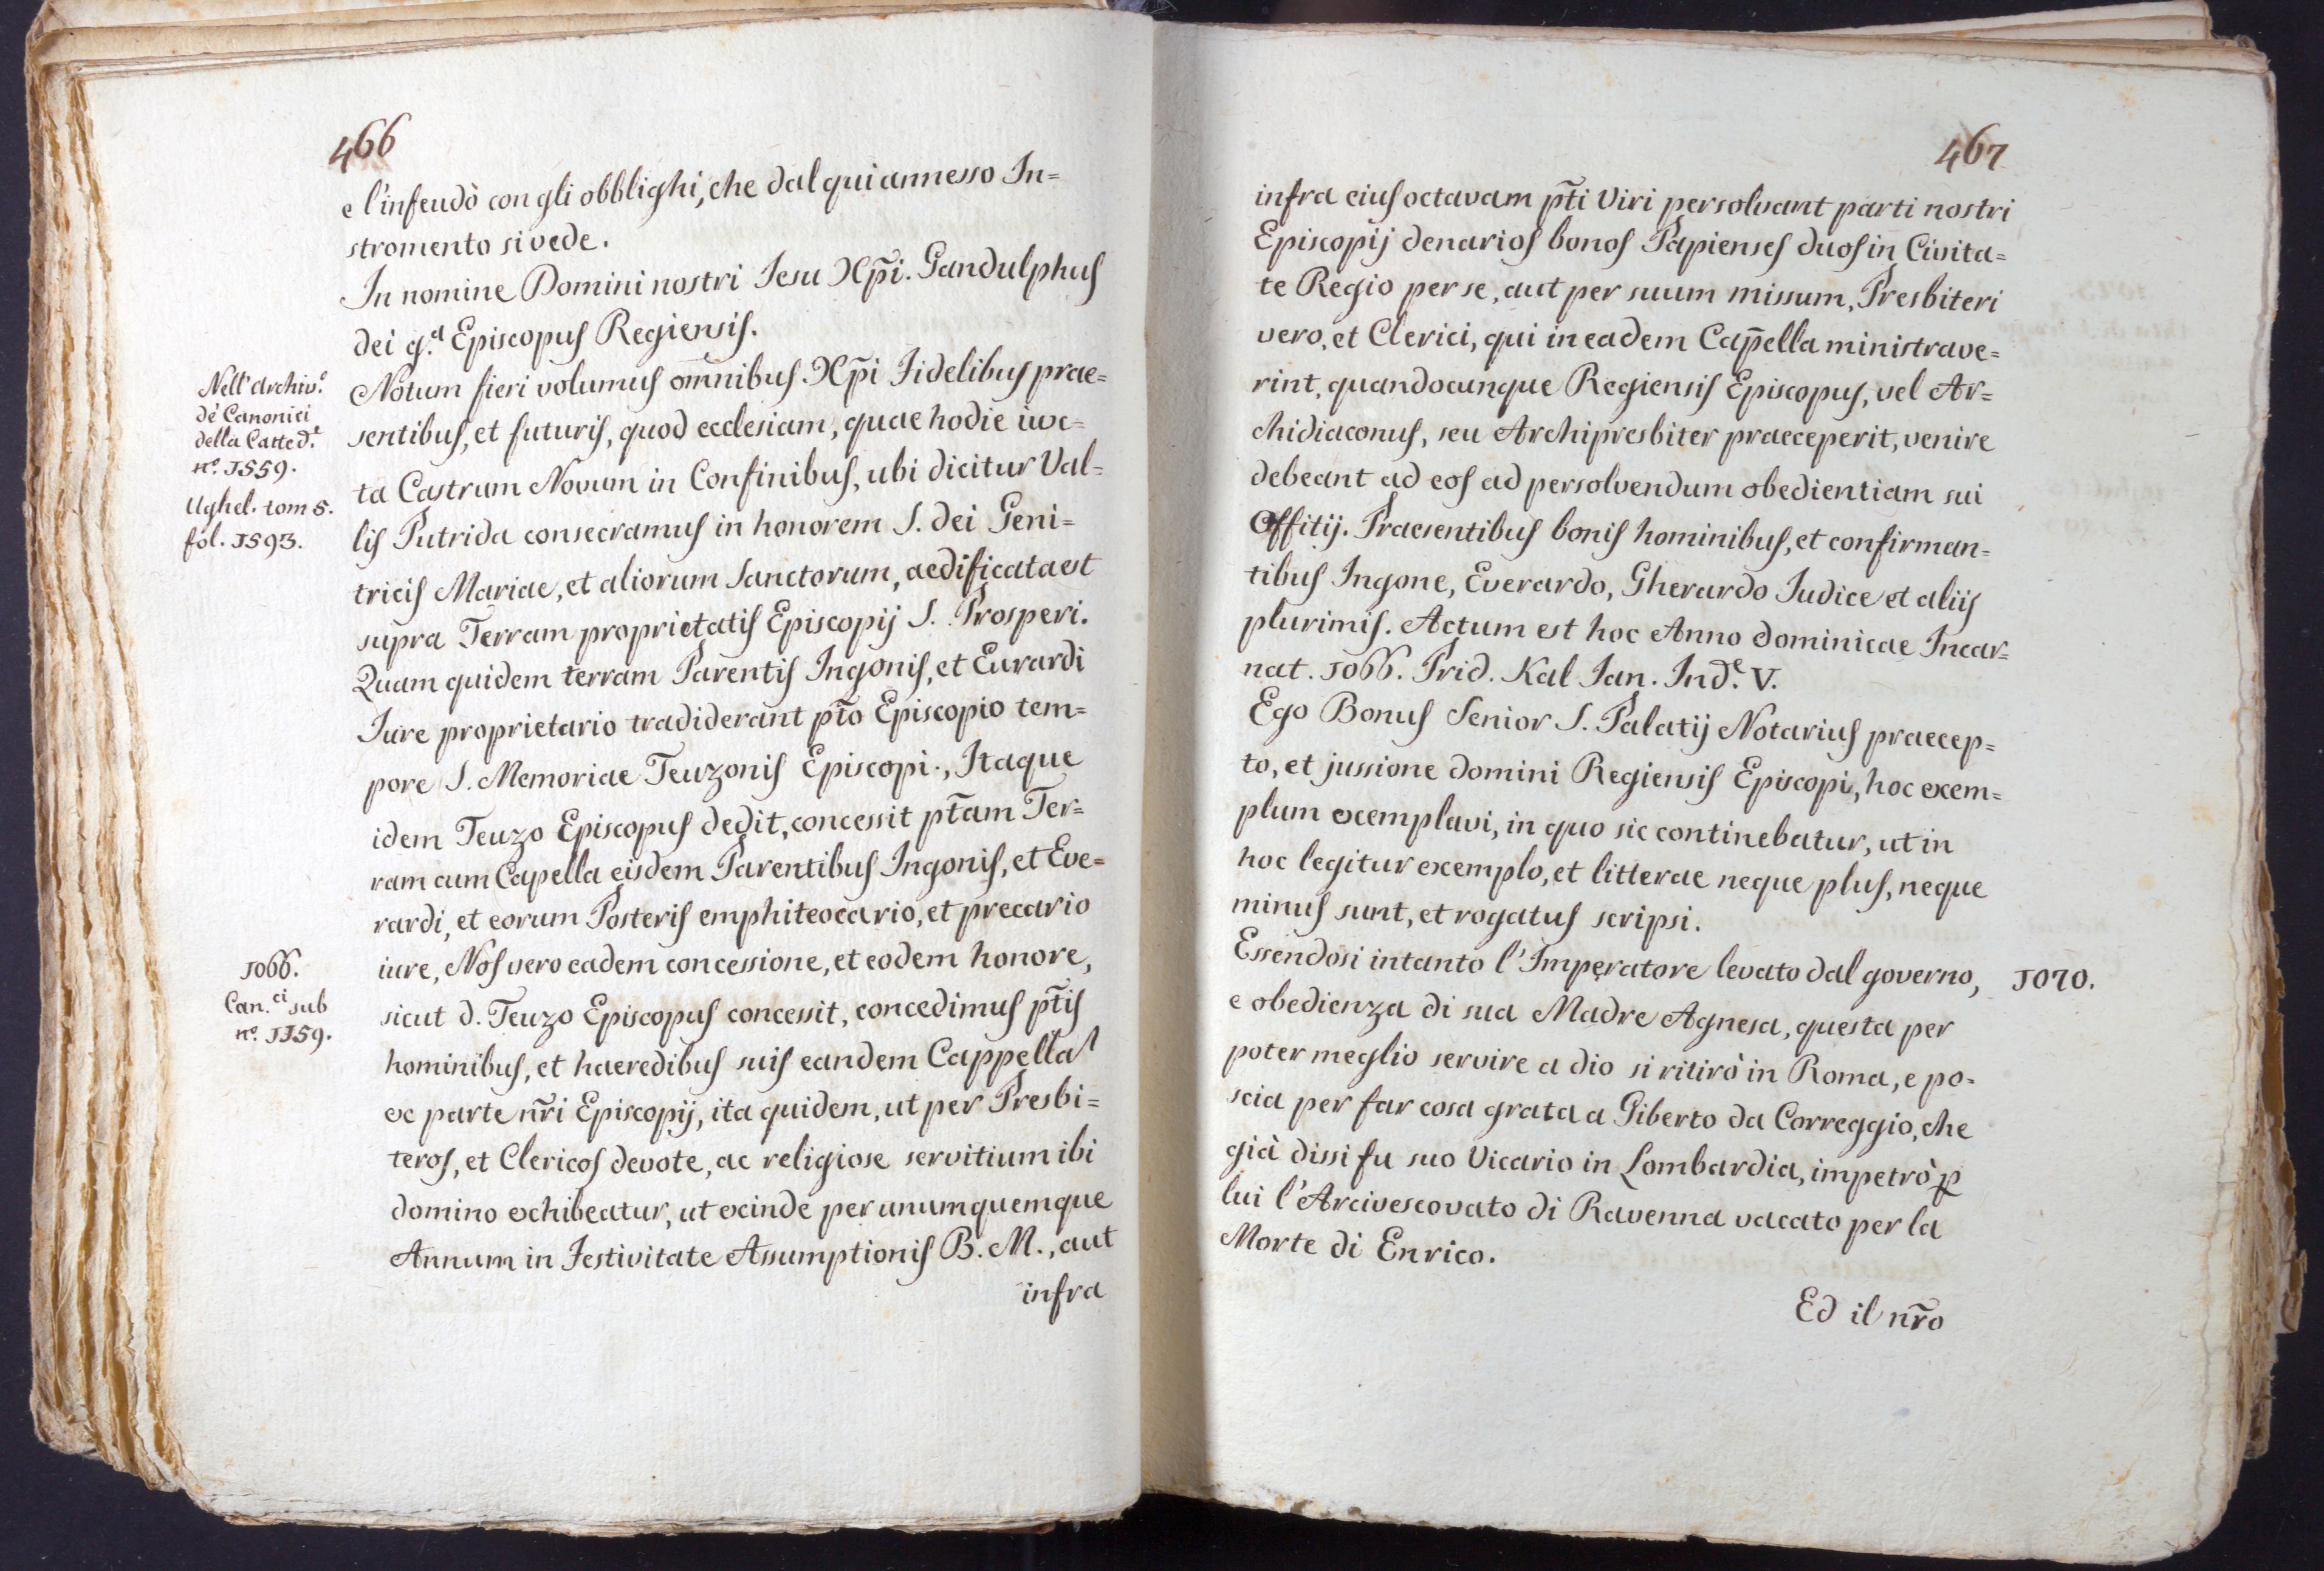 466
e l'infeudò con gli obblighi, che dal qui annesso In=
stromento si vede.
In nomine Domini nostri Iesu Xp̃i. Gandulphus
dei g.ª Episcopus Regiensis.
Nell'Archiv.º
de' Canonici
della Catted.ᵉ
nº. 1559.
Ughel. tom 5.
fol. 1593.
Notum fieri volumus omnibus Xp̃i Fidelibus prae=
sentibus, et futuris, quod ecclesiam, quae hodie iux=
ta Castrum Novum in Confinibus, ubi dicitur Val=
lis Putrida consecramus in honorem S. dei Geni=
tricis Mariae, et aliorum Sanctorum, aedificata est
supra Terram proprietatis Episcopij S. Prosperi.
Quam quidem terram Parentis Ingonis, et Eurardi
Iure proprietario tradiderant pt̃o Episcopio tem=
pore S. Memoriae Teuzonis Episcopi., Itaque
idem Teuzo Episcopus dedit, concessit pt̃am Ter=
ram cum Capella eisdem Parentibus Ingonis, et Eve=
rardi, et eorum Posteris emphiteocario, et precario
1066.
Can.ᶜⁱ sub
nº. 1159.
iure, Nos vero eadem concessione, et eodem honore,
sicut d. Teuzo Episcopus concessit, concedimus pt̃is
hominibus, et haeredibus suis eandem Cappella
ex parte nr̃i Episcopij, ita quidem, ut per Presbi=
teros, et Clericos devote, ac religiose servitium ibi
domino exhibeatur, ut exinde per unumquemque
Annum in Festivitate Assumptionis B. M., aut
infra
467
infra eius octavam pt̃i Viri persolvant parti nostri
Episcopij denarios bonos Papienses duos in Civita=
te Regio per se, aut per suum missum, Presbiteri
vero, et Clerici, qui in eadem Cap̃ella ministrave=
rint, quandocunque Regiensis Episcopus, vel Ar=
chidiaconus, seu Archipresbiter praeceperit, venire
debeant ad eos ad persolvendum obedientiam sui
Offitij. Praesentibus bonis hominibus, et confirman=
tibus Ingone, Everardo, Gherardo Iudice et aliis
plurimis. Actum est hoc Anno dominicae Incar=
nat. 1066. Prid. Kal Ian. Ind.ᵉ V.
Ego Bonus Senior S. Palatij Notarius praecep=
to, et jussione domini Regiensis Episcopi, hoc exem=
plum exemplavi, in quo sic continebatur, ut in
hoc legitur exemplo, et litterae neque plus, neque
minus sunt, et rogatus scripsi.
Essendosi intanto l'Imperatore levato dal governo, 1070.
e obedienza di sua Madre Agnesa, questa per
poter meglio servire a dio si ritirò in Roma, e po=
scia per far cosa grata a Giberto da Correggio, che
già dissi fu suo Vicario in Lombardia, impetrò ꝑ
lui l'Arcivescovato di Ravenna vacato per la
Morte di Enrico.
Ed il nr̃o